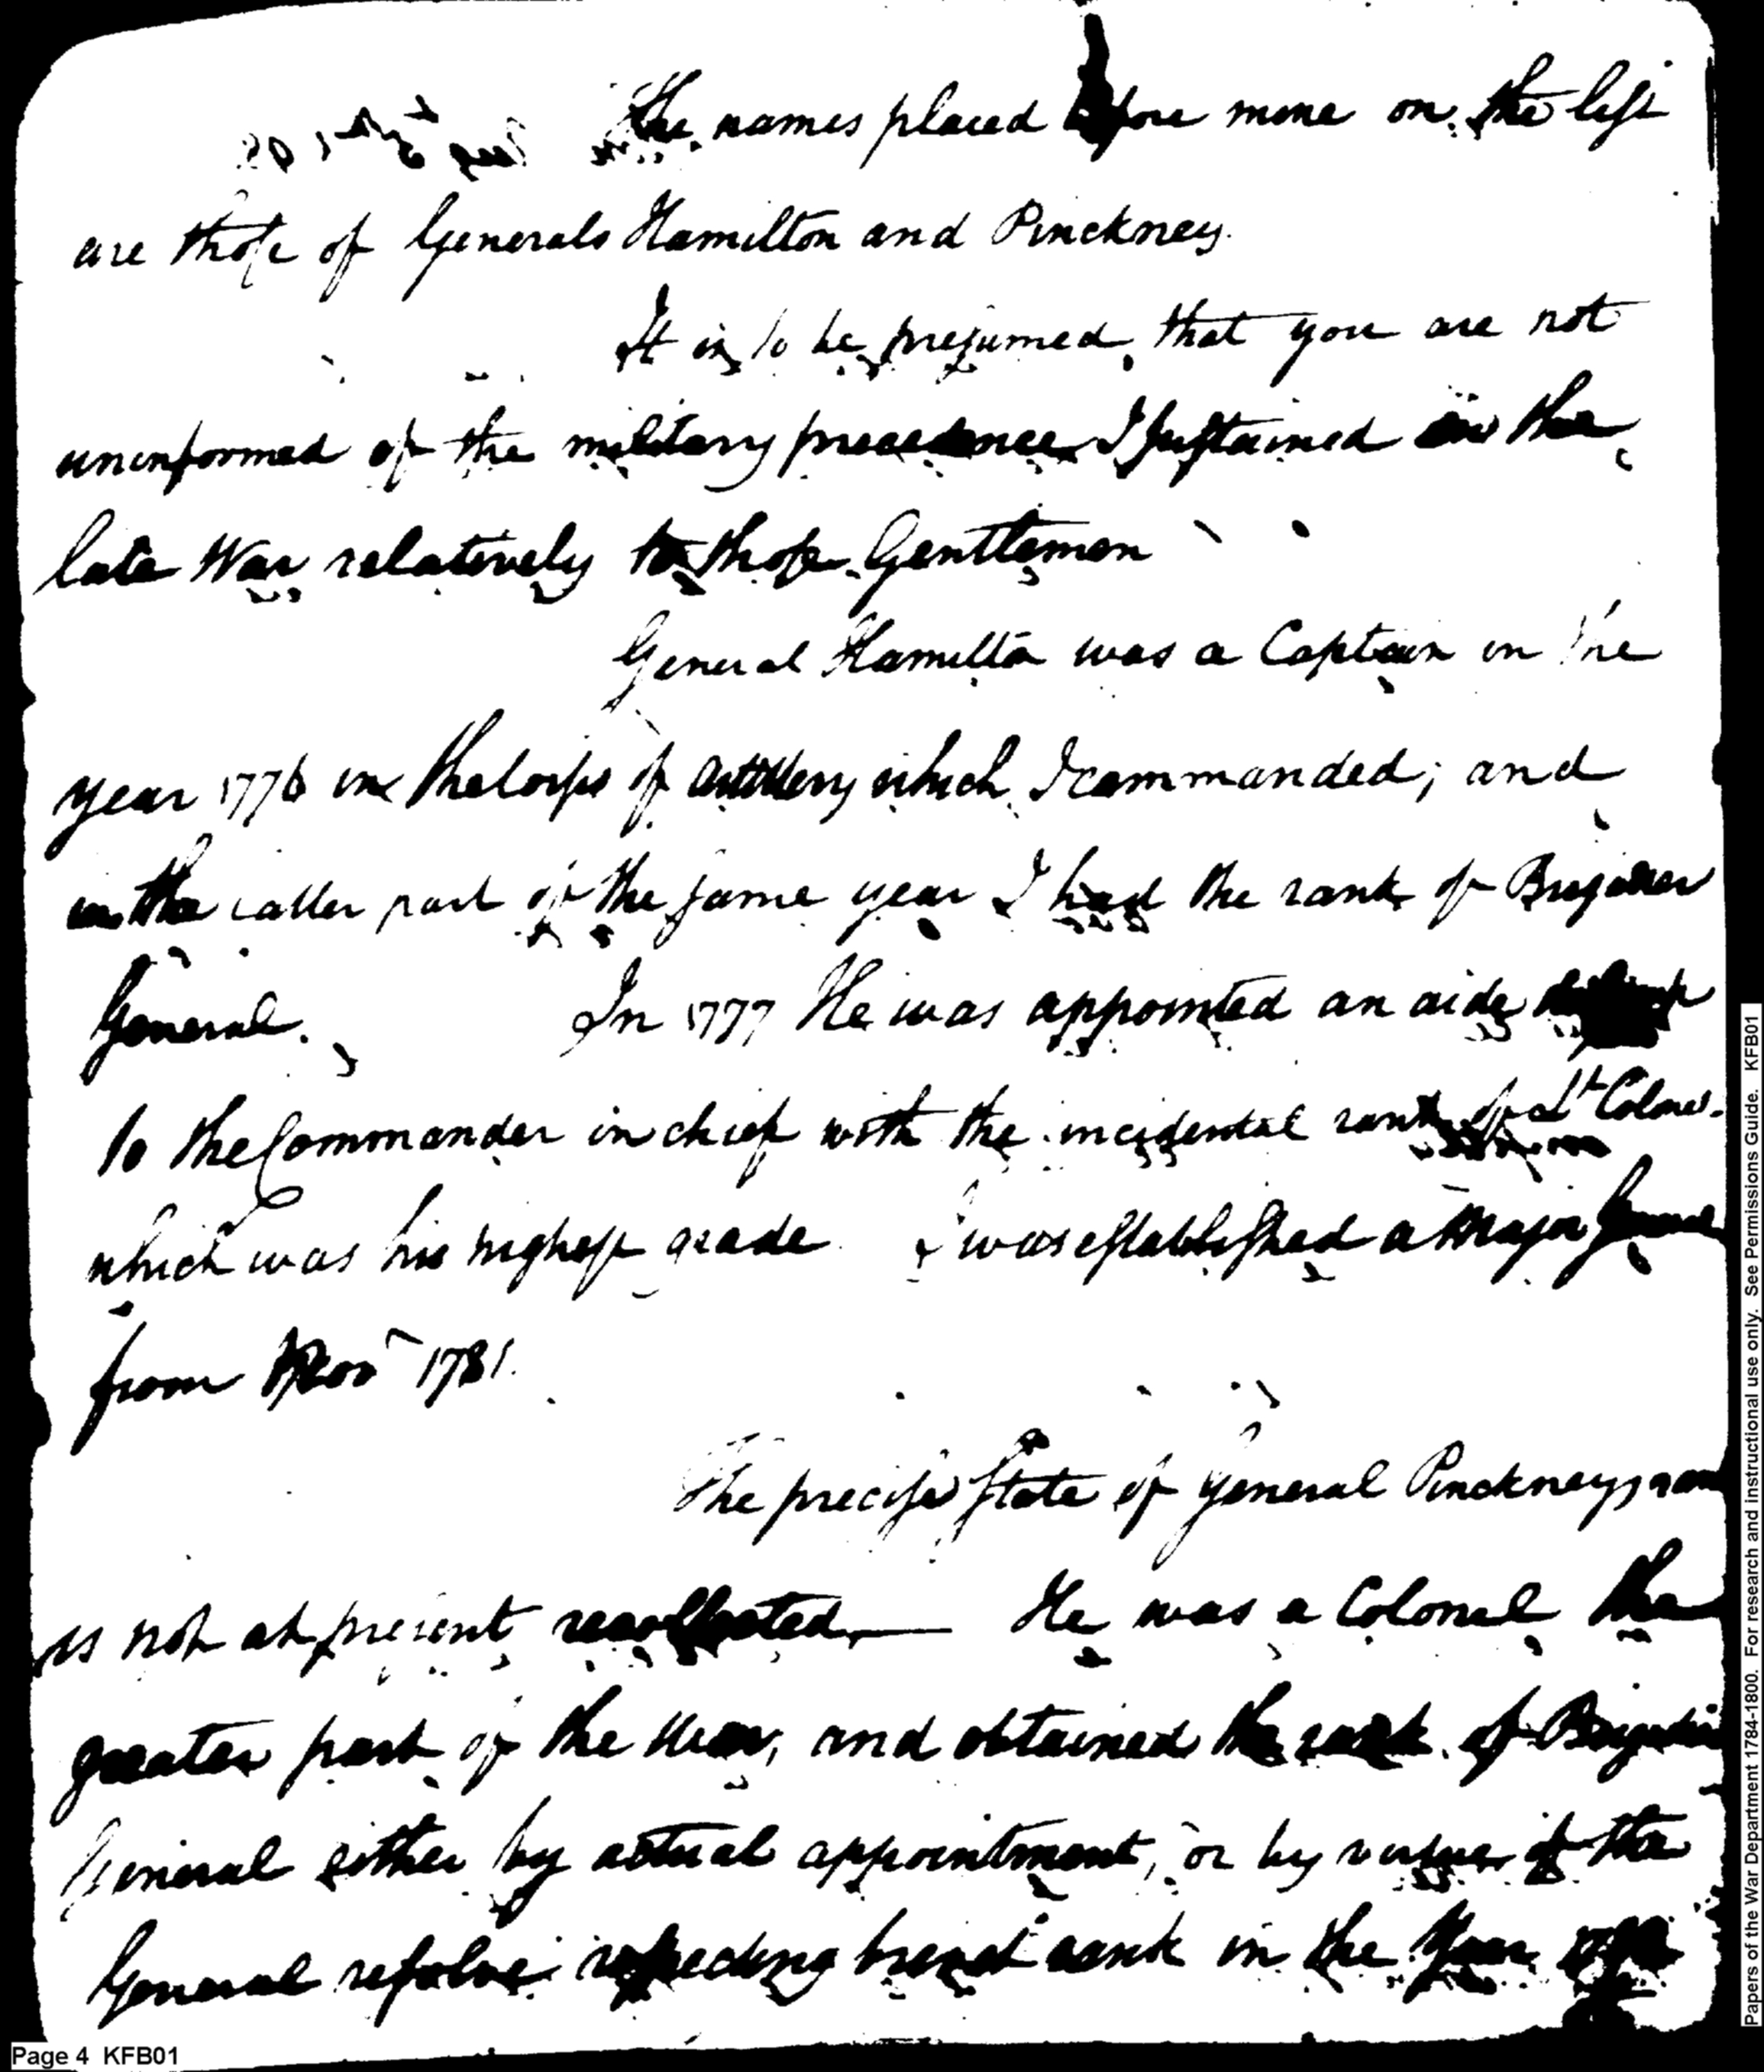 The names placed before mine on the left
are those of Generals Hamilton and Pinckney.
It is to be presumed that you are not
uninformed of the military precedence I sustained in the
late War relatively to those Gentlemen
General Hamilton was a Captain in the
year 1776 in the Corps of Artillery which I commanded; and
in the latter part of the same year I had the rank of Brigadier
General. In 1777 He was appointed an aide de Camp
to the Commander in chief with the incidental rank of Lt Colonel
which was his highest grade. I was established a Major General
from Novr 1781.
The precise state of General Pinckneys rank
is not at present recollected — He was a Colonel the
greater part of the War, and obtained the rank of Brigadier
General either by actual appointment, or by virtue of the
General resolve respecting brevet rank in the Year
Page 4 KFB01
Papers of the War Department 1784-1800. For research and instructional use only. See Permissions Guide. KFB01